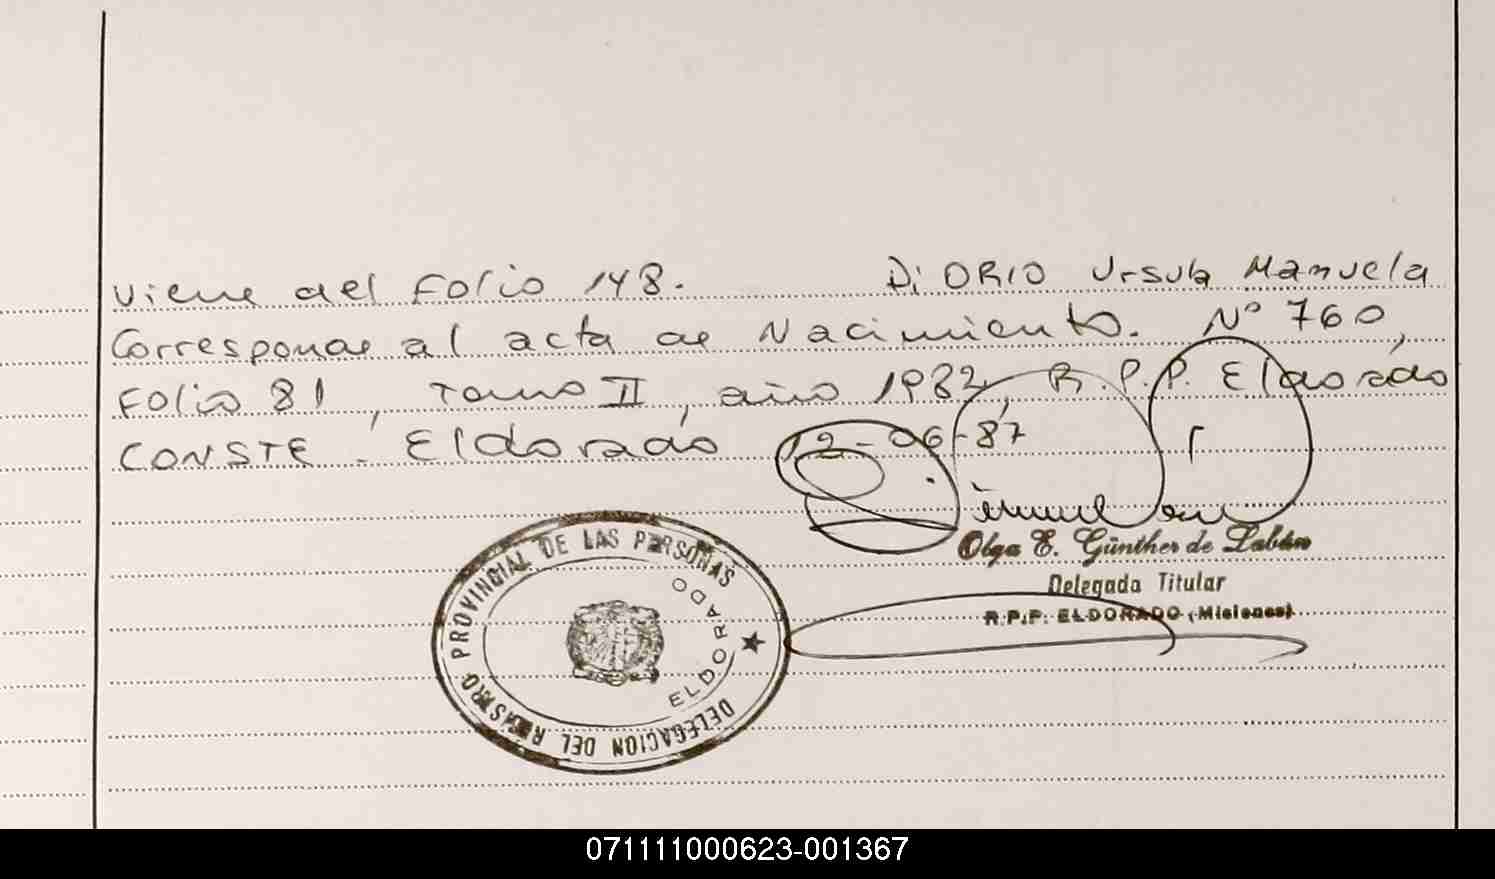 Viene del Folio 148. Di ORIO Ursula Manuela
Corresponde al acta de Nacimiento. Nº 760,
Folio 81, Tomo II, año 1982, R.P.P. Eldorado
CONSTE. Eldorado 12-06-87
Olga E. Günther de Labán
Delegada Titular
R.P.P. ELDORADO (Misiones)
DELEGACION DEL REGISTRO PROVINCIAL DE LAS PERSONAS
ELDORADO
071111000623-001367